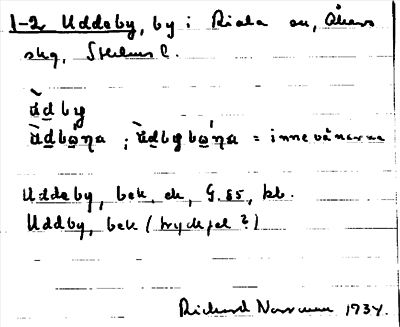 1-2 Uddeby, by i Riala sn, Åkers
skg, Sthlms l.
ùdby
ùdbo̲na ; ùdbybo̲na = innevånarna
Uddeby, bek, ek, G. 85, kb.
Uddby, bek (tryckfel?)
Richard 1934.